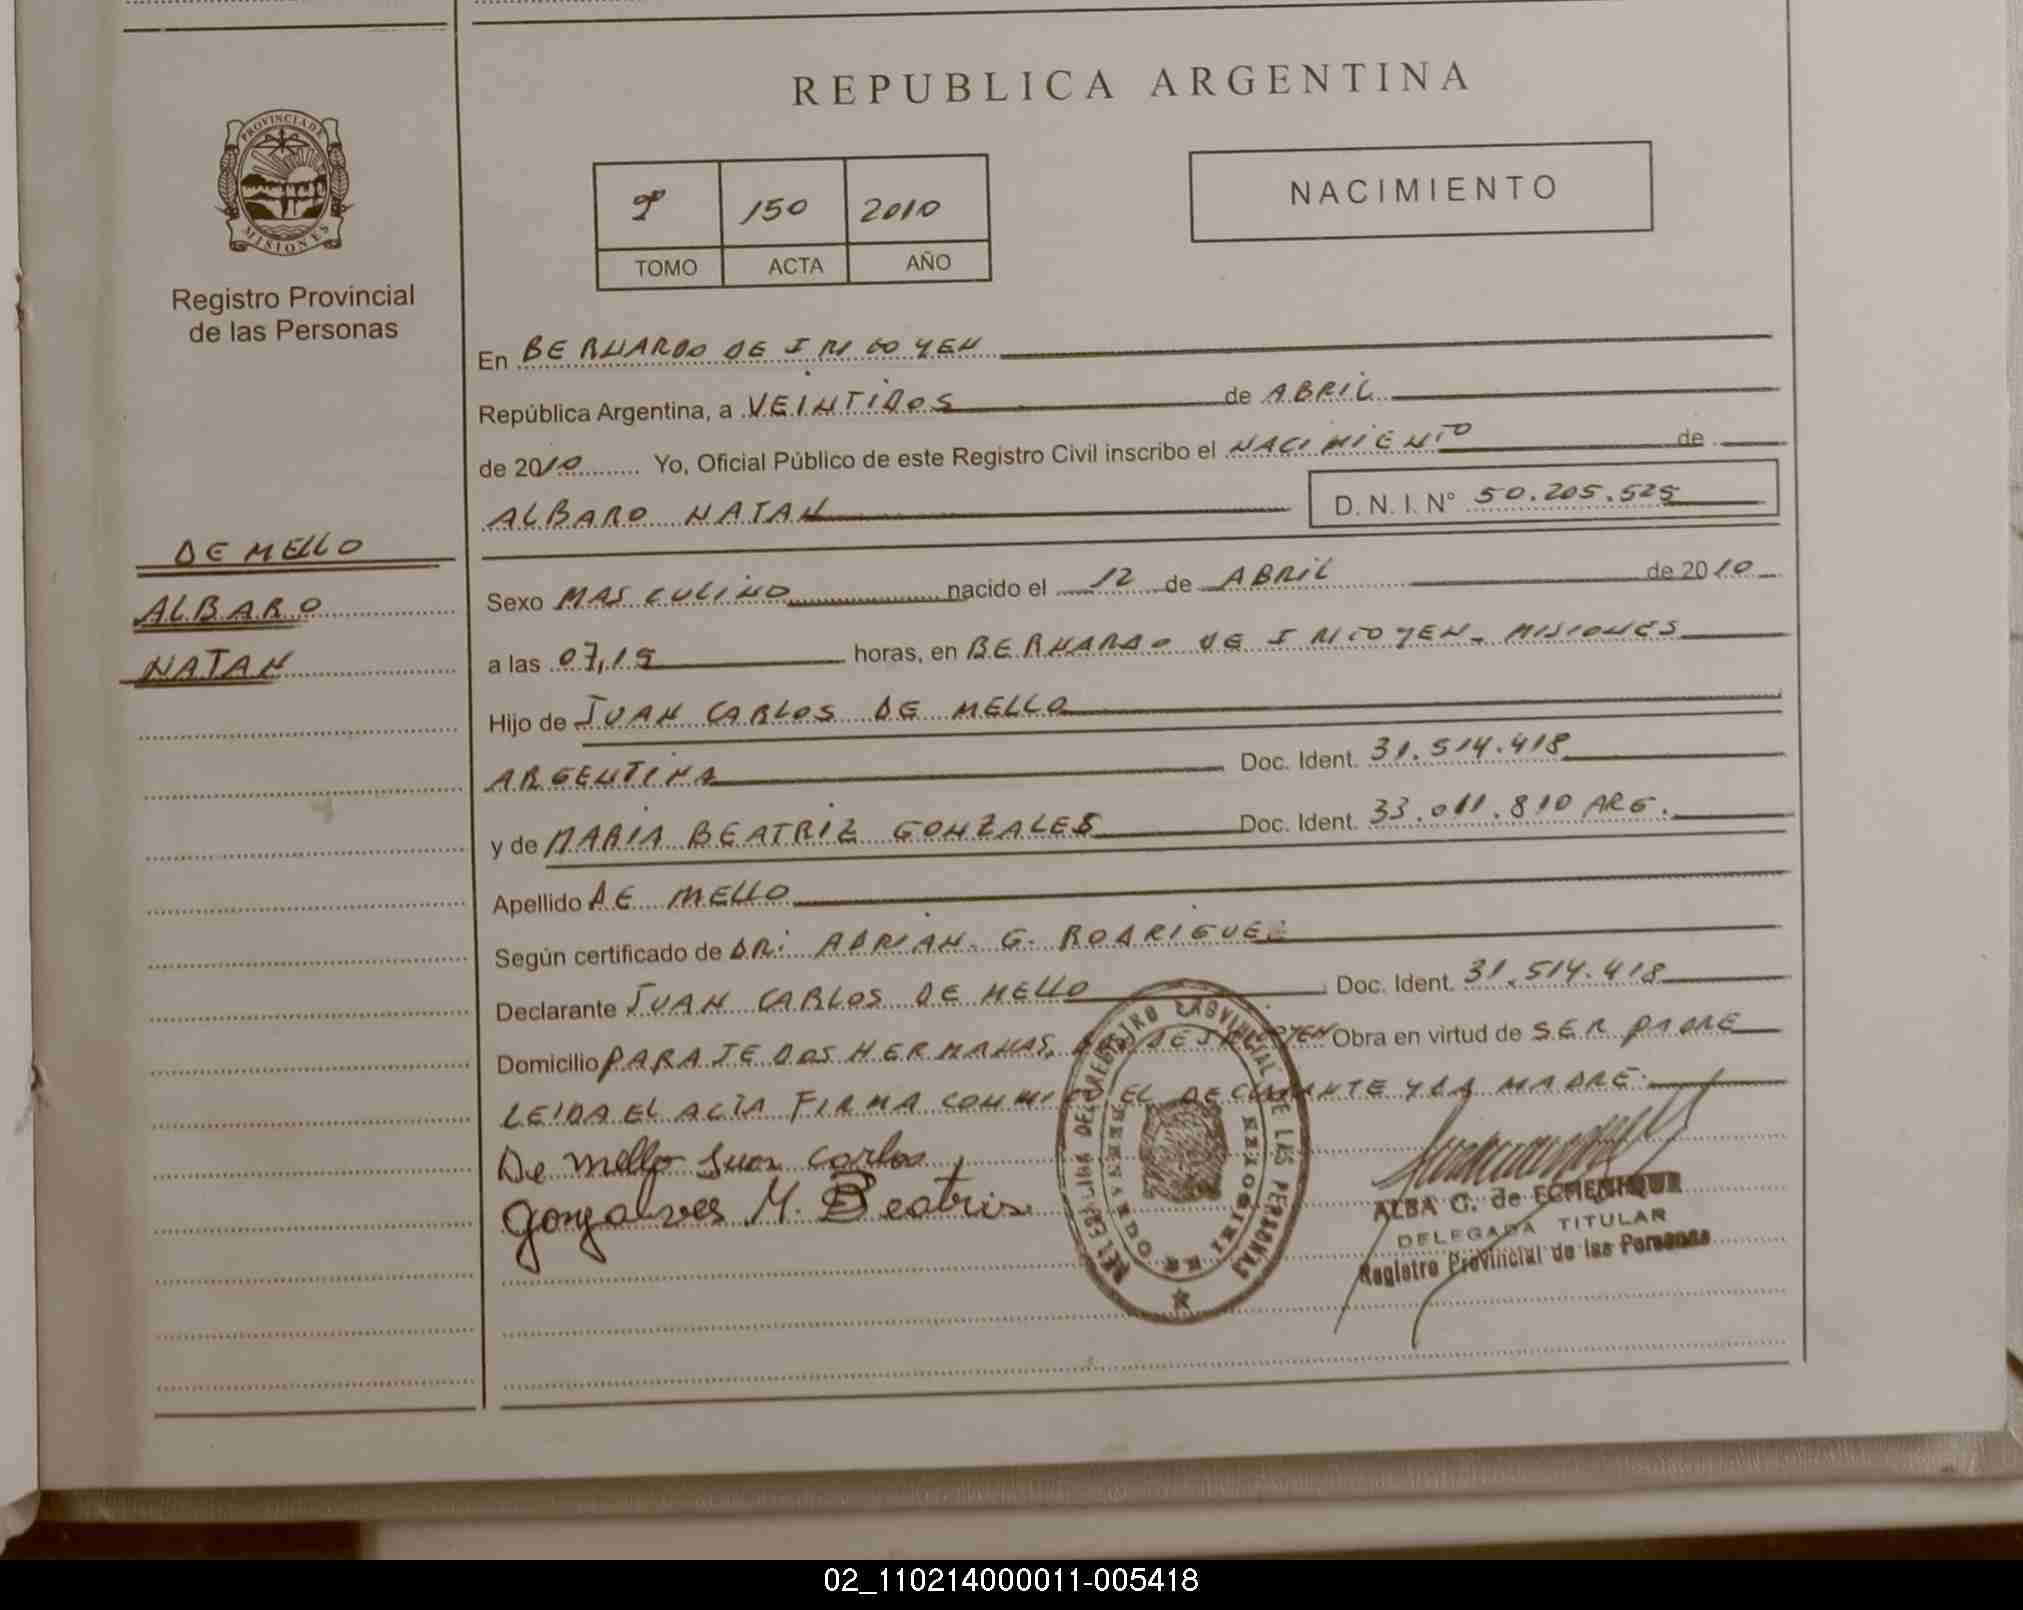 REPUBLICA ARGENTINA
PROVINCIA DE
MISIONES
Registro Provincial
de las Personas
150 2010
TOMO ACTA AÑO
NACIMIENTO
En BERNARDO DE IRIGOYEN
República Argentina, a VEINTIDOS de ABRIL
de 2010 Yo, Oficial Público de este Registro Civil inscribo el NACIMIENTO de
ALBARO NATAN D. N. I. N° 50.205.525
DE MELLO
ALBARO
NATAN
Sexo MASCULINO nacido el 12 de ABRIL de 2010
a las 07,15 horas, en BERNARDO DE IRIGOYEN - MISIONES
Hijo de JUAN CARLOS DE MELLO
ARGENTINA Doc. Ident. 31.514.418
y de MARIA BEATRIZ GONZALES Doc. Ident. 33.011.810 ARG.
Apellido DE MELLO
Según certificado de DR: ADRIAN G. RODRIGUEZ
Declarante JUAN CARLOS DE MELLO Doc. Ident. 31.514.418
Domicilio PARAJE DOS HERMANAS, Obra en virtud de SER PADRE
LEIDA EL ACTA FIRMA CONMIGO EL DECLARANTE Y LA MADRE.
De mello Juan carlos
Gonçalves M. Beatris
DELEGADA DEL REGISTRO PROVINCIAL DE LAS PERSONAS
BERNARDO DE IRIGOYEN
MISIONES
ALBA G. de ECHENIQUE
DELEGADA TITULAR
Registro Provincial de las Personas
02_110214000011-005418